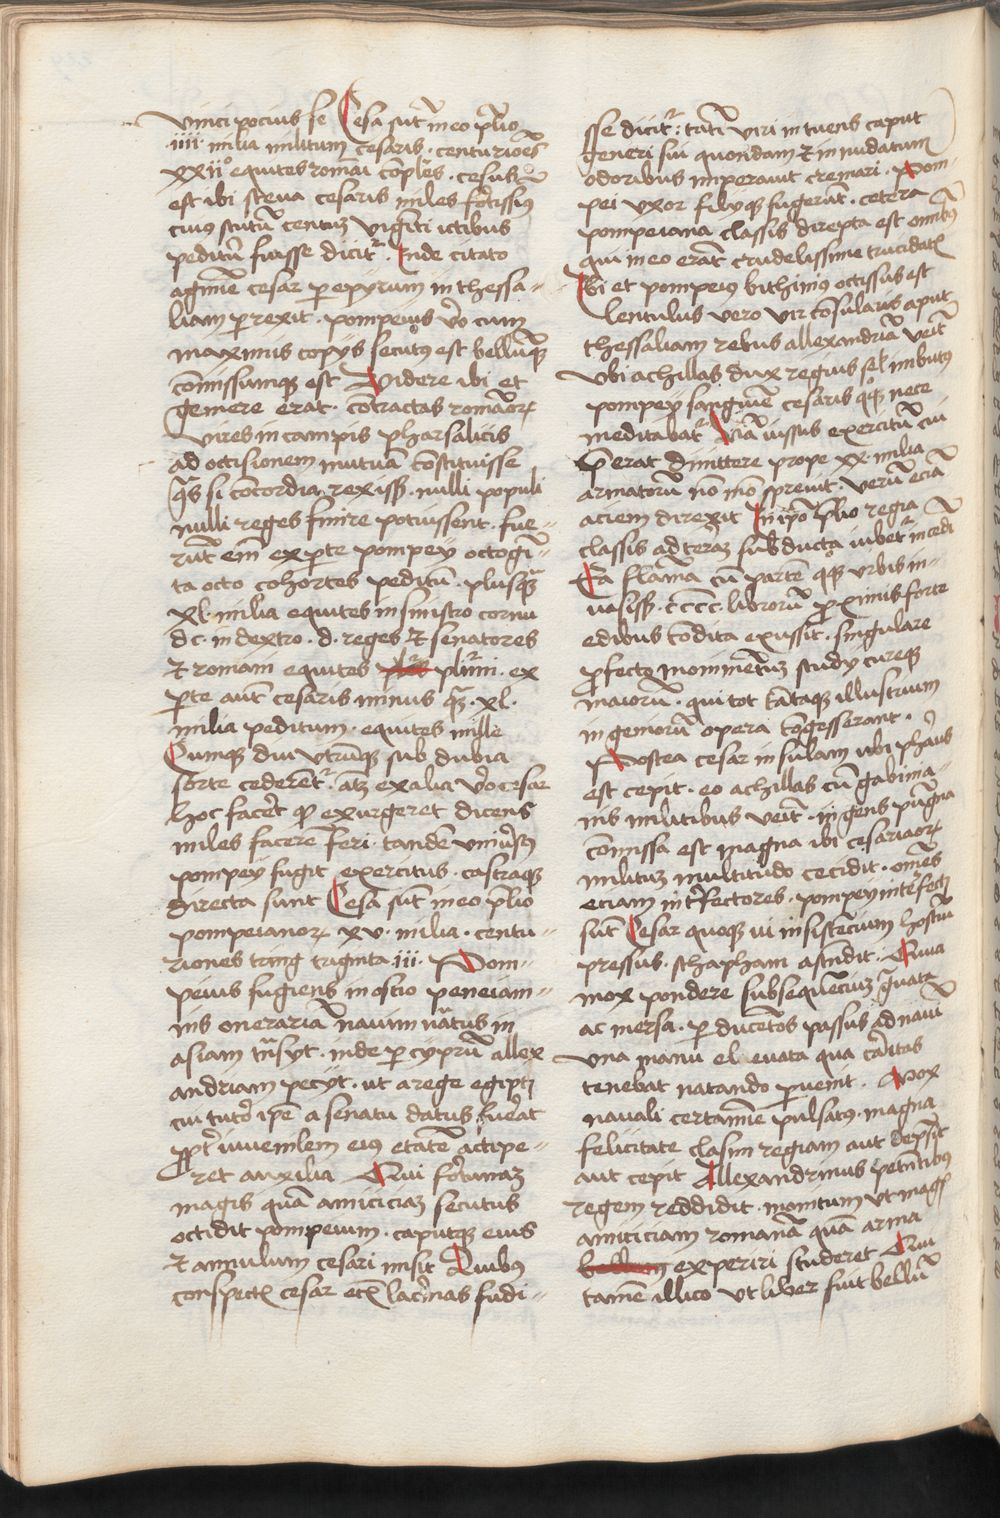 vinci pocius se Cesa sūt in eo p̄lio
·iiii· milia militum cesaris · centurioēs
xxii° equites romāi cōples · cesus
est ibi sceua cesaris miles fortissīus
cuius scutū centuȝ viginti ictibus
peditū fuisse dicit᷑ · Inde citato
agmine cesar per epyrum in thessa-
liam perrexit · pompeius v̊o cum
maximis copijs secutus est bellūqꝫ
cōmissumqꝫ est Videre ibi et
gemere erat · contractas romāorꝝ
vires in campis pharsalicis
ad occisionem mutuā constituisse
q̄s si concordia rexiss · nulli populi
nulli reges finire potuissent · fue-
rūt em̄ ex pte pompeij octogī-
ta octo cohortes peditū · plusq̄
xl · milia equites in sinistro cornu
dc · in dextro · d · reges et senatores
et romani equites plurimi · ex
pte aut̄ cesaris minus q̄ · xl ·
milia peditum · equites mille
Cumqꝫ diu vtrūqꝫ sub dubia
sorte cederent᷑ · atqꝫ ex alia v̊o cesar
hoc facēt qd exurgeret dicens
miles facerem feri · tandē vniūsus
pompeij fugit exercitus · castraqꝫ
directa sunt Cesa sūt in eo p̄lio
pompeianorꝝ xv · milia · centu-
riones tring triginta iii · Pom-
peius fugiens in ostio peneiam-
nis onerariā nauim nāctus in
asiam trāsijt · inde per cyprū allex
andriam pecijt · ut a rege egipti
cui tutor ipe a senatu datus fuerat
ppt̄ iuuenilem eius etatē accipe-
ret auxilia Qui fortunaȝ
magis quā amiciciaȝ secutus
occidit pompeium · caputqꝫ eius
et annulum cesari misit Quibus
conspectis cesar etiā lacrimas fudi-
sse dicit᷑ : tanti viri intuens caput
generi sui quondam et in nudatum
odoribus imperauit cremari · Pom-
pei vxor filijqꝫ fugerūt · cetera
pompeiana classis direpta est omībus
qui in eo erāt crudelissime trucidatis
Ibi et pompeius bithinius occissus est
lentulus vero vir cōsularis aput
thessaliam rebus allexandriā venit
vbi achillas dux regius sel imbutus
pompeij sanguīe cesaris quoqꝫ nece
meditabat᷑ Nā iussus exercitū cui
p̄erat dimittere prope xx · milia
armatorū nō mō spreuit · verū eciā
aciem direxit In ipo p̄lio regia
classis ad terā subducta iubet᷑ incedi
Ea flāma cū partē quoqꝫ vrbis in-
uasiss · cccc · librorū proximis forte
edibus condita exussit · singulare
profecto monimentuȝ studij cureqꝫ
maiorū · qui tot tātaqꝫ illustrium
ingeniorū opera congesserant ·
Postea cesar insulam ubi pharus
est cepit · eo achillas cū gabinia-
nis militibus venit · ingens pugna
cōmissa est magna ibi cesariaorꝝ
militum multitudo cecidit · omēs
eciam interfectores · pompeij interfecti
sūt Cesar quoqꝫ ui insistencium hostiū
pressus · schapham ascendit · Qua
mox pondere subsequenciuȝ grauata
ac mersa · per ducentos passus ad nauī
vna manu el euata qua cartas
tenebat natando peruenit · Mox
nauali certamine pulsatus · magna
felicitate classim regiam aut depressit
aut cepit Allexandrinus petentibus
regem reddidit · monitum vt magis
amiciciam romanā quā arma
bellum experiri studeret Qui
tamē illico vt liber fuit bellū